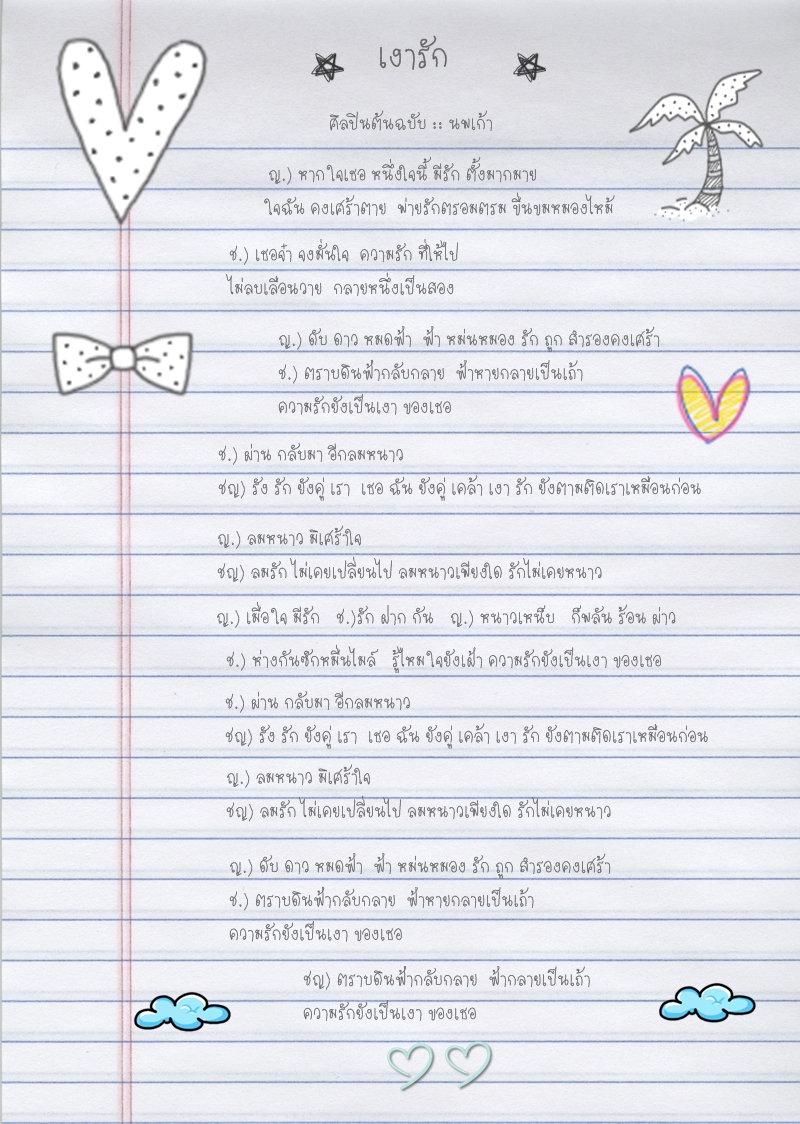 เงารัก
ศิลปินต้นฉบับ :: นพเก้า
ญ.) หากใจเธอ หนึ่งใจนี้ มีรัก ตั้งมากมาย
ใจฉัน คงเศร้าตาย พ่ายรักตรอมตรม ขื่นขมหมองไหม้
ช.) เธอจ๋า จงมั่นใจ ความรัก ที่ให้ไป
ไม่ลบเลือนวาย กลายหนึ่งเป็นสอง
ญ.) ดับ ดาว หมดฟ้า ฟ้า หม่นหมอง รัก ถูก สำรองคงเศร้า
ช.) ตราบดินฟ้ากลับกลาย ฟ้าหายกลายเป็นเถ้า
ความรักยังเป็นเงา ของเธอ
ช.) ผ่าน กลับมา อีกลมหนาว
ชญ) รัง รัก ยังคู่ เรา เธอ ฉัน ยังคู่ เคล้า เงา รัก ยังตามติดเราเหมือนก่อน
ญ.) ลมหนาว มิเศร้าใจ
ชญ) ลมรัก ไม่เคยเปลี่ยนไป ลมหนาวเพียงใด รักไม่เคยหนาว
ญ.) เมื่อใจ มีรัก ช.)รัก ฝาก กัน ญ.) หนาวเหน็บ ก็พลัน ร้อน ผ่าว
ช.) ห่างกันซักหมื่นไมล์ รู้ไหมใจยังเฝ้า ความรักยังเป็นเงา ของเธอ
ช.) ผ่าน กลับมา อีกลมหนาว
ชญ) รัง รัก ยังคู่ เรา เธอ ฉัน ยังคู่ เคล้า เงา รัก ยังตามติดเราเหมือนก่อน
ญ.) ลมหนาว มิเศร้าใจ
ชญ) ลมรัก ไม่เคยเปลี่ยนไป ลมหนาวเพียงใด รักไม่เคยหนาว
ญ.) ดับ ดาว หมดฟ้า ฟ้า หม่นหมอง รัก ถูก สำรองคงเศร้า
ช.) ตราบดินฟ้ากลับกลาย ฟ้าหายกลายเป็นเถ้า
ความรักยังเป็นเงา ของเธอ
ชญ) ตราบดินฟ้ากลับกลาย ฟ้ากลายเป็นเถ้า
ความรักยังเป็นเงา ของเธอ